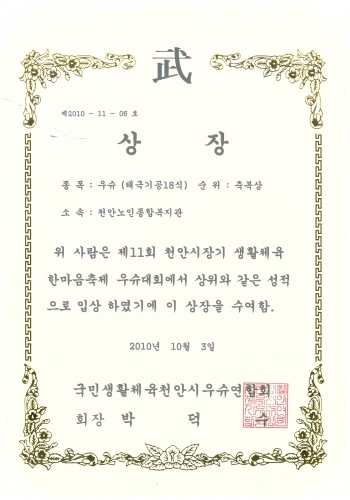 武
제2010 - 11 - 06 호
상 장
종 목 : 우슈 (태극기공18식) 순 위 : 축복상
소 속 : 천안노인종합복지관
위 사람은 제11회 천안시장기 생활체육
한마음축제 우슈대회에서 상위와 같은 성적
으로 입상 하였기에 이 상장을 수여함.
2010년 10월 3일
국민생활체육천안시우슈연합회
회장 박 덕 수